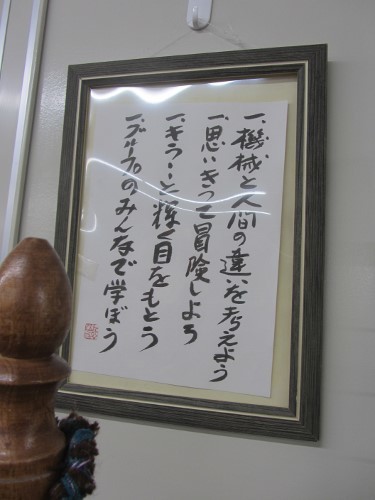 一、機械と人間の違いを考えよう
一、思いきって冒険しよう
一、きらーんと輝く目をもとう
一、グループのみんなで学ぼう